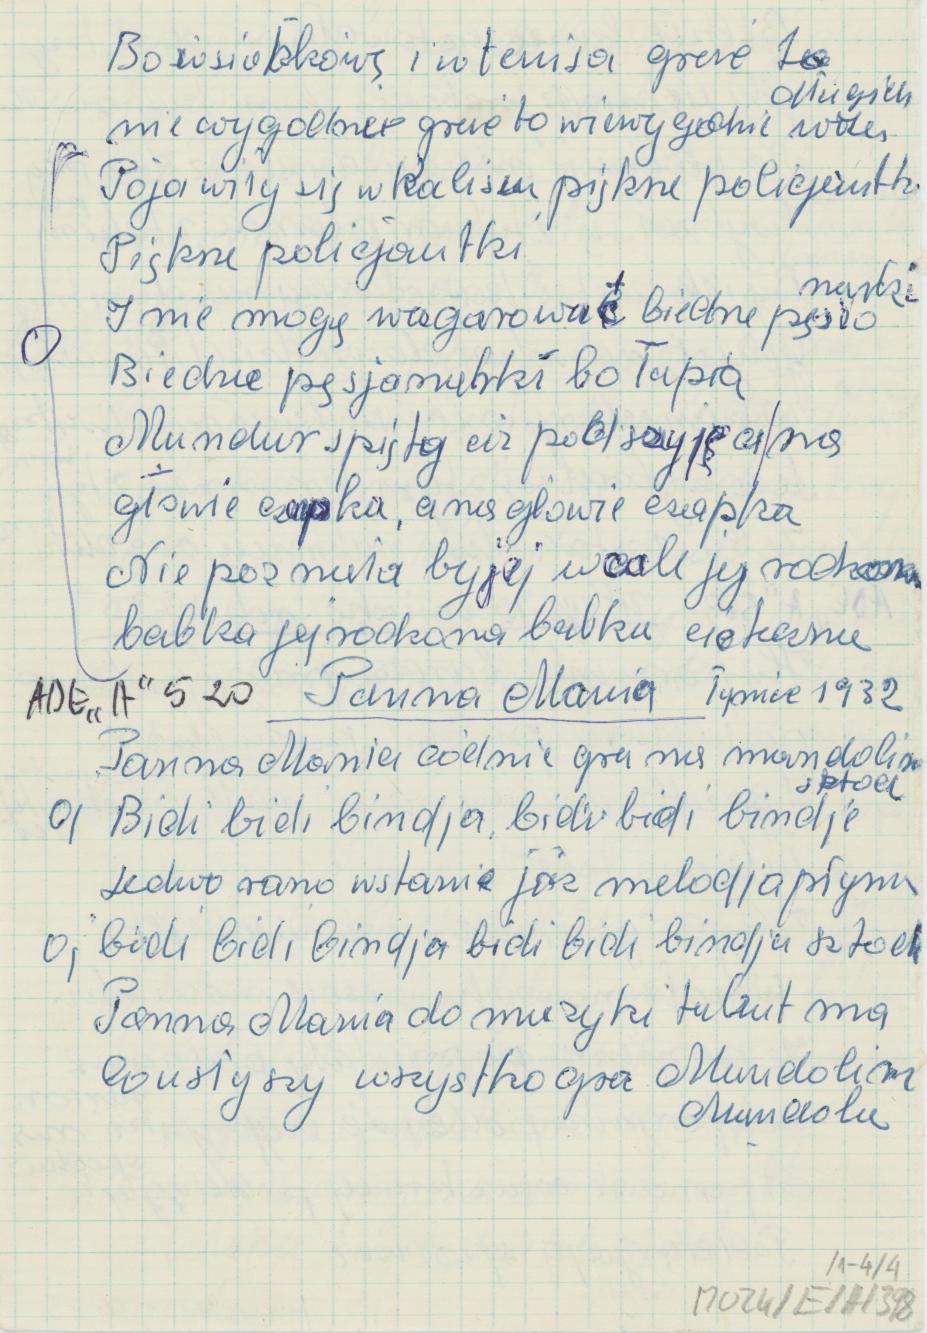 Bo w siatkówkę i w tenisa grać to
długich
nie wygodnie grać to niewygodnie
Pojawiły się w Kaliszu piękne policjantki
Piękne policjantki
narki
I nie mogą wagarować biedne
Biedne pęsjonarki bo łapią
Mundur spięty aż pod szyję a na
głowie czapka, a na głowie czapka
Nie poznała by jej wcale jej rodzona
babka jej rodzona babka cioteczna
ADE „A" 520 Panna Mania Tynice 1932
Panna Mania codnie gra na mandolin
sztock
Oj Bidi bidi bindja, bidi bidi bindje
Ledwo rano wstanie już melodja płynie
Oj bidi bidi bindja bidi bidi bindja sztock
Panna Mania do muzyki talent ma
Co usłyszy wszystko gra Mandolin
Mandolu
/1-4/4
MOZK/E/A/398